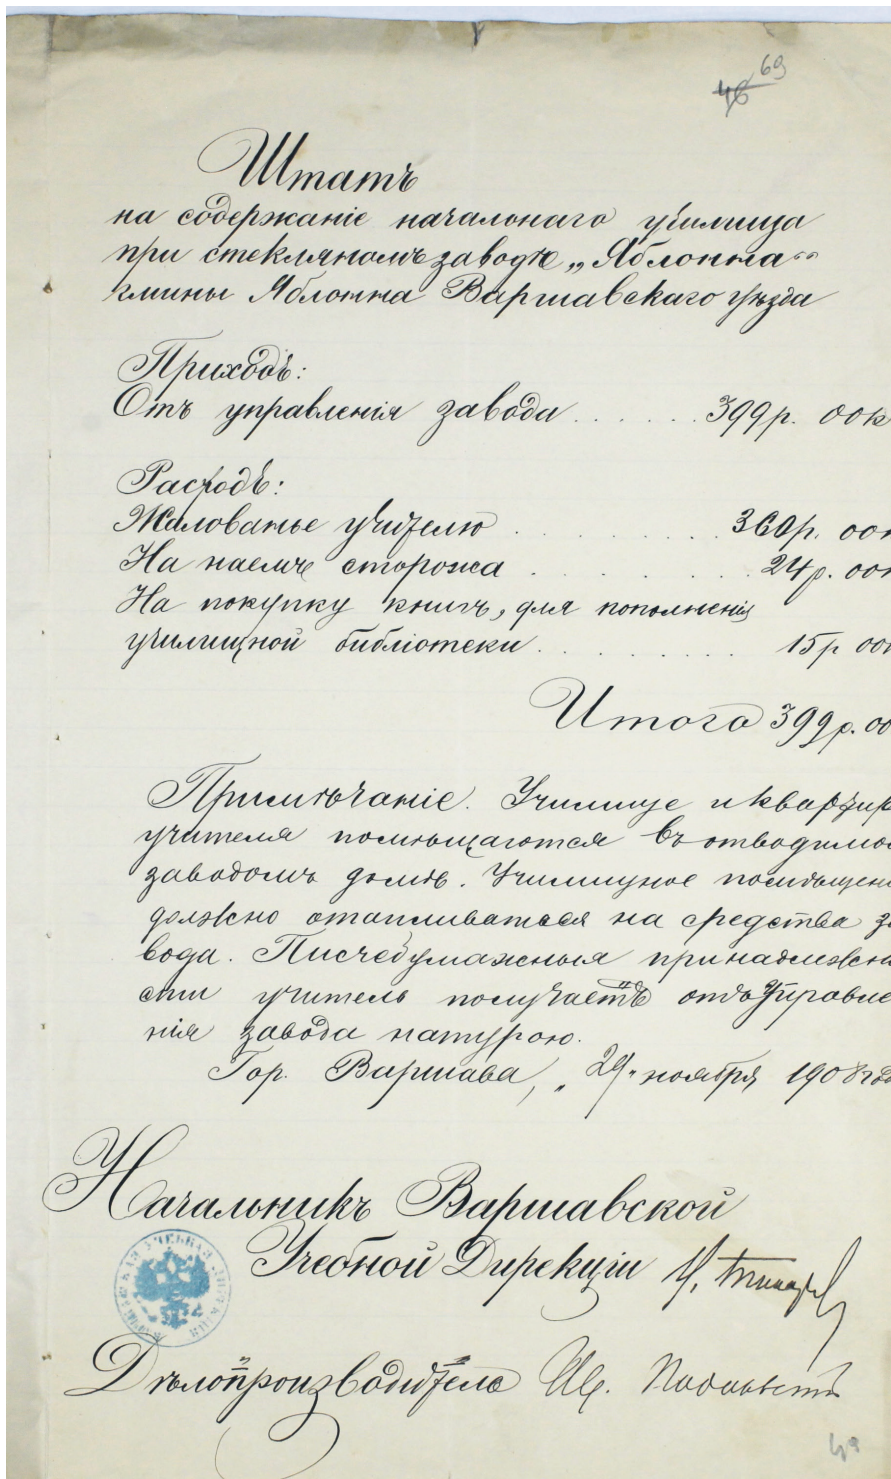 69
46
Штатъ
на содержаніе начальнаго училища
при стекляномъ заводѣ „Яблонна“
гмины Яблонна Варшавскаго уѣзда
Приходъ:
Отъ управленія завода . . . . . . 399 р. 00 к
Расходъ:
Жалованье учителю . . . . . . . 360 р. 00 к
На наемъ сторожа . . . . . . . 24 р. 00 к
На покупку книгъ, для пополненія
училищной библіотеки . . . . . . . 15 р 00 к
Итого 399 р. 00
Примѣчаніе. Училище и квартир
учителя помѣщаются въ отводимом
заводомъ домѣ. Училищное помѣщені
должно отапливаться на средства за
вода. Писчебумажныя принадлежно
сти учитель получаетъ отъ управле
нія завода натурою.
Гор. Варшава, „29“ ноября 1908 года
Начальникъ Варшавской
Учебной Дирекціи
УЧЕБНАЯ
Дѣлопроизводитель
49